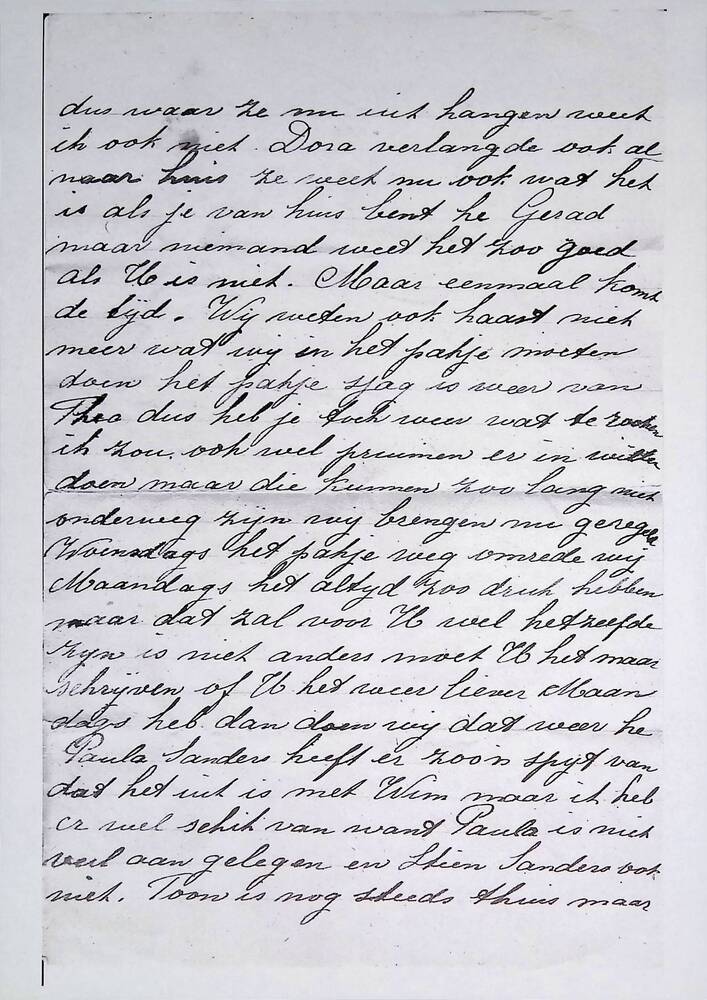 dus waar ze nu uit hangen weet
ik ook niet. Dora verlangde ook al
naar huis ze weet nu ook wat het
is als je van huis bent he Gerad
maar niemand weet het zoo goed
als U is niet. Maar eenmaal komt
de tijd. Wij weten ook haast niet
meer wat wij in het pakje moeten
doen het pakje sjag is weer van
Theo dus heb je toch weer wat te rooken
ik zou ook wel pruimen er in willen
doen maar die kunnen zoo lang niet
onderweg zijn wij brengen nu geregeld
Woensdags het pakje weg omrede wij
Maandags het altyd zoo druk hebben
maar dat zal voor U wel hetzelfde
zyn is niet anders moet U het maar
schrijven of U het weer liever Maan
dags heb dan doen wij dat weer he
Paula Sanders heeft er zoo'n spyt van
dat het uit is met Wim maar ik heb
er wel schik van want Paula is niet
veel aan gelegen en Stien Sanders ook
niet. Toon is nog steeds thuis maar